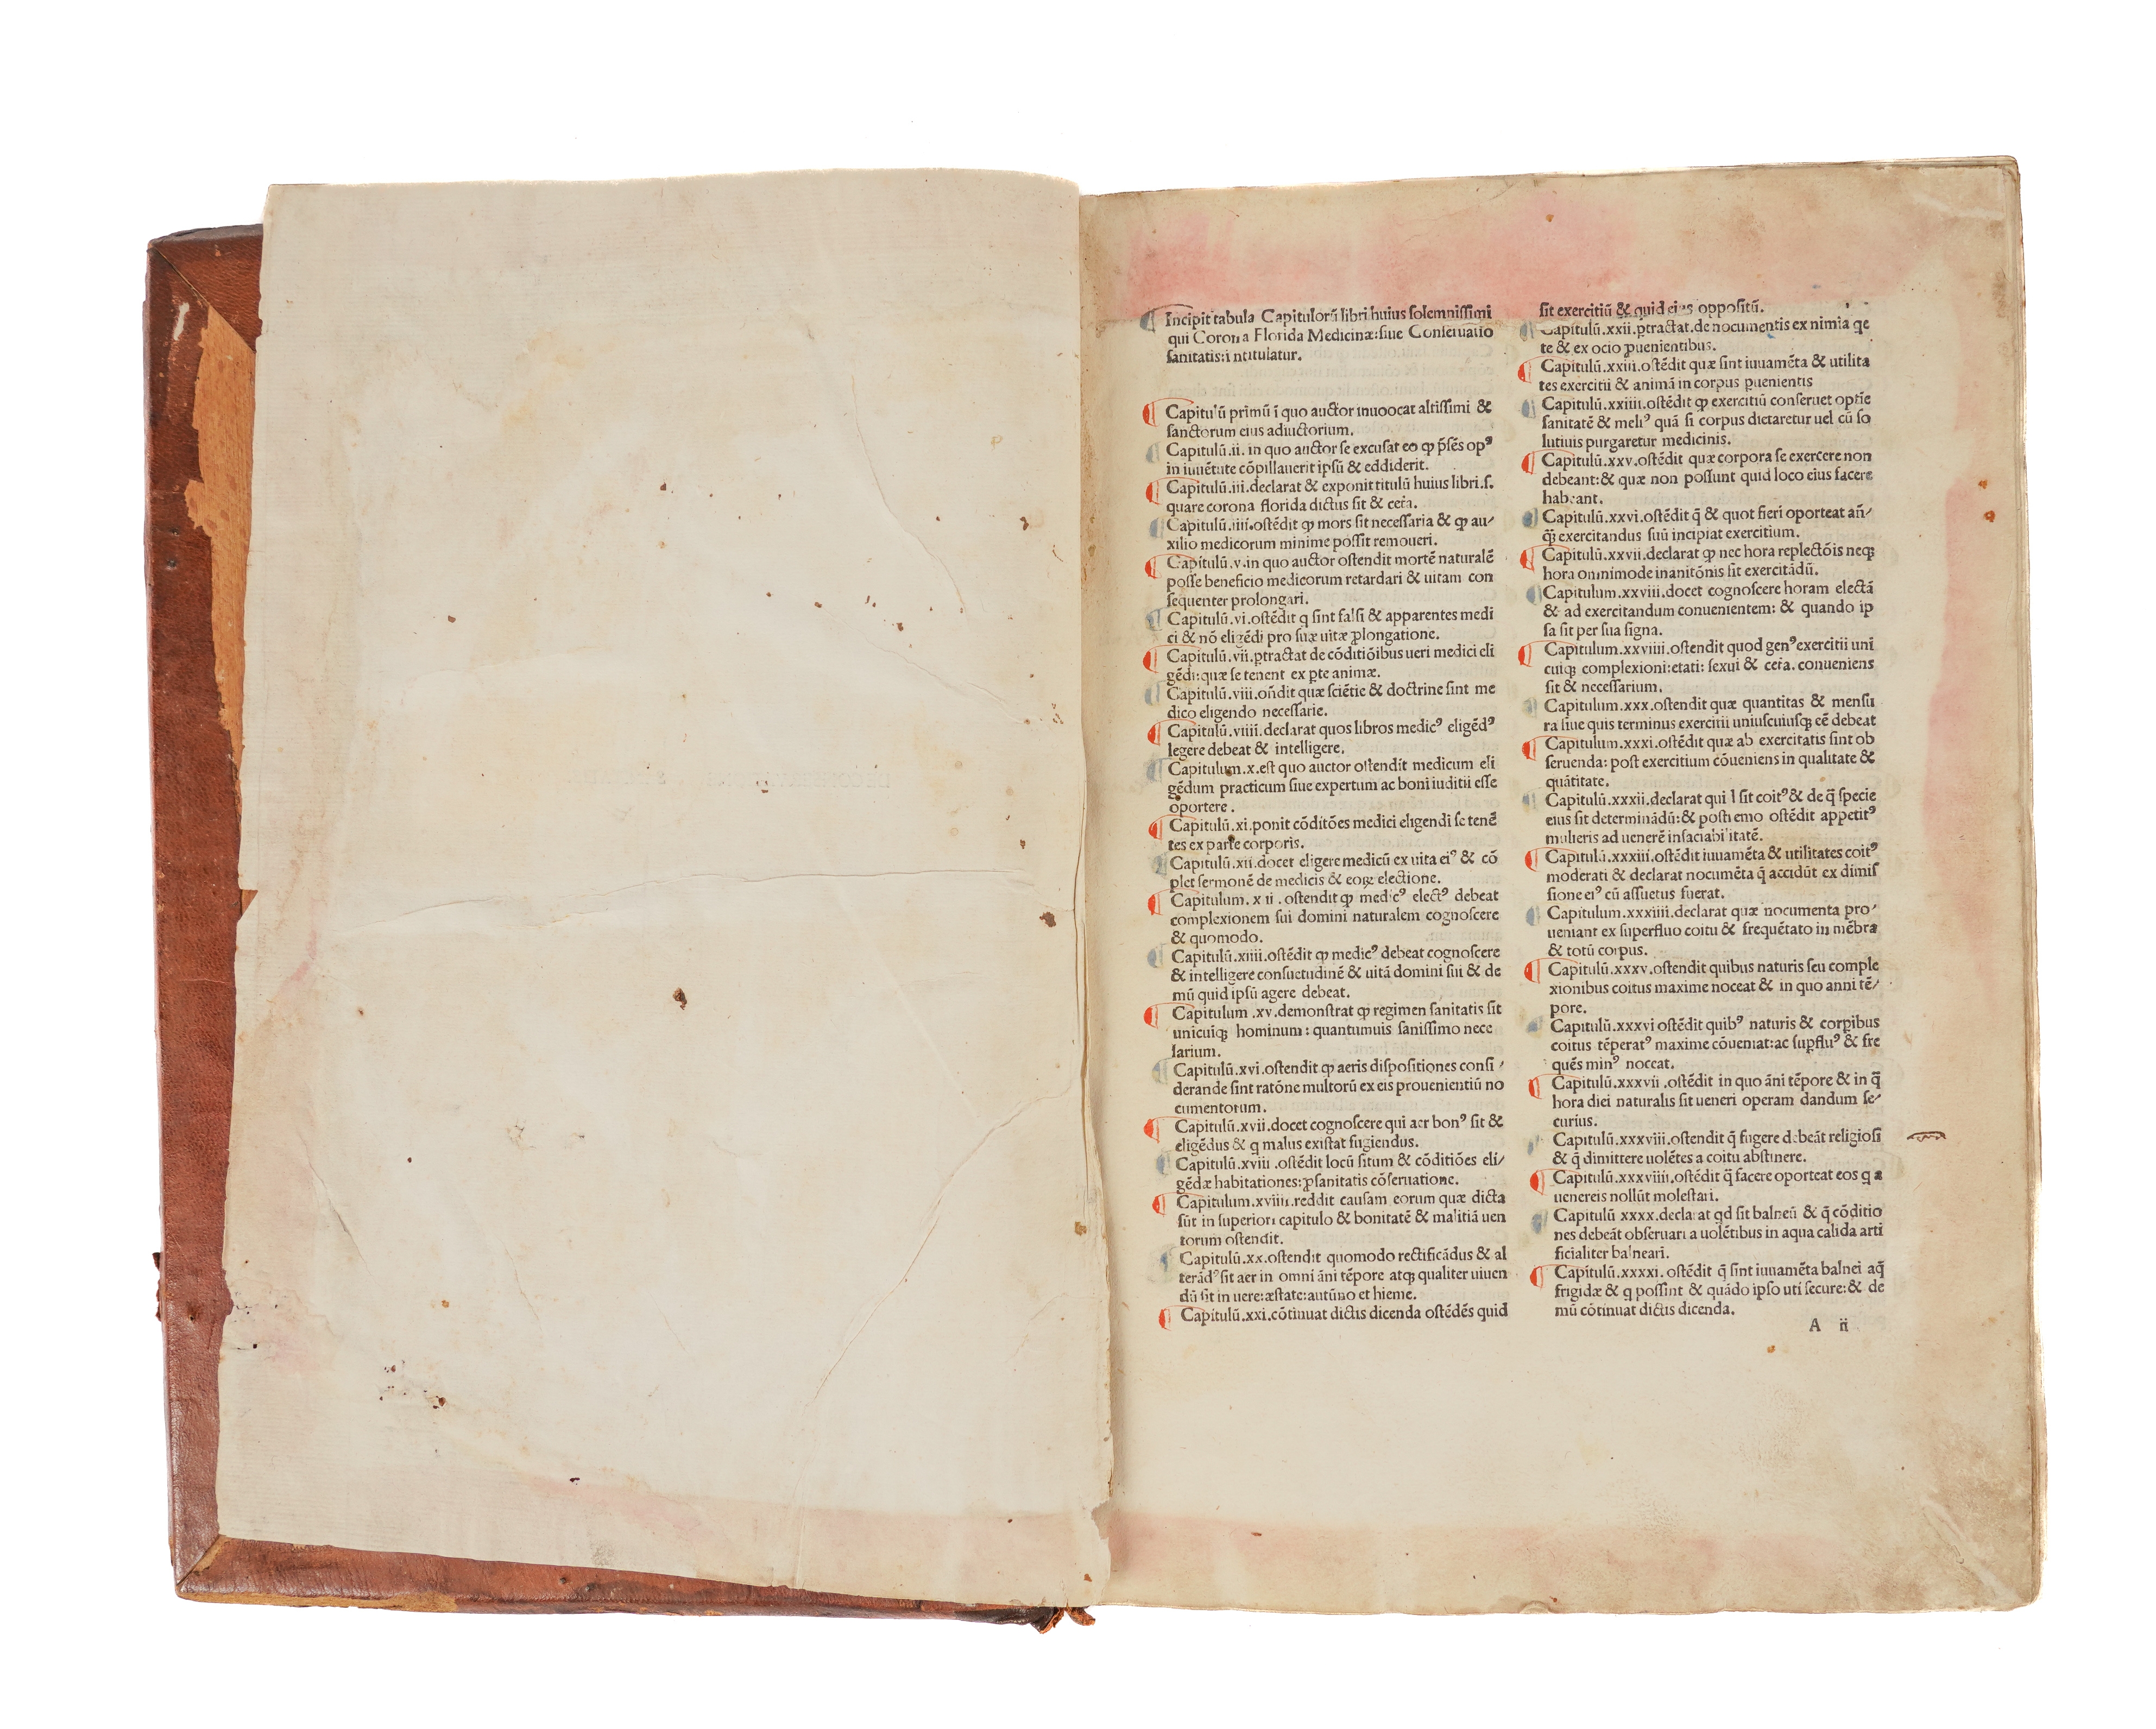 Incipit tabula Capitulorū libri huius solemnissimi
qui Corona Florida Medicinæ:siue Conseruatio
sanitatis:intitulatur.
Capitulū primū ī quo auctor inuoocat altissimi &
sanctorum eius adiuctorium.
Capitulū.ii. in quo auctor se excusat eo ꝙ p̄sēs opꝰ
in iuuētute cōpillauerit ipsū & eddiderit.
Capitulū.iii.declarat & exponit titulū huius libri.s.
quare corona florida dictus sit & cet̄a.
Capitulū.iiii.ostēdit ꝙ mors sit necessaria & ꝙ au/
xilio medicorum minime possit remoueri.
Capitulū.v.in quo auctor ostendit mortē naturalē
posse beneficio medicorum retardari & uitam con
sequenter prolongari.
Capitulū.vi.ostēdit q sint falsi & apparentes medi
ci & nō eligēdi pro suæ uitæ ꝓlongatione.
Capitulū.vii.ꝑtractat de cōditiōibus ueri medici eli
gēdi:quæ se tenent ex ꝑte animæ.
Capitulū.viii.oñdit quæ sciētie & doctrine sint me
dico eligendo necessarie.
Capitulū.viiii.declarat quos libros medicꝰ eligēdꝰ
legere debeat & intelligere.
Capitulum.x.est quo auctor ostendit medicum eli
gēdum practicum siue expertum ac boni iuditii esse
oportere.
Capitulū.xi.ponit cōditōes medici eligendi se tenē
tes ex parte corporis.
Capitulū.xii.docet eligere medicū ex uita eiꝰ & cō
plet sermonē de medicis & eoꝝ electione.
Capitulum.x ii. ostendit ꝙ medicꝰ electꝰ debeat
complexionem sui domini naturalem cognoscere
& quomodo.
Capitulū.xiiii.ostēdit ꝙ medicꝰ debeat cognoscere
& intelligere consuetudinē & uitā domini sui & de
mū quid ipsū agere debeat.
Capitulum .xv.demonstrat ꝙ regimen sanitatis sit
unicuiqꝫ hominum: quantumuis sanissimo nece
sarium.
Capitulū.xvi.ostendit ꝙ aeris dispositiones consi/
derande sint ratōne multorū ex eis prouenientiū no
cumentorum.
Capitulū.xvii.docet cognoscere qui aer bonꝰ sit &
eligēdus & q malus existat fugiendus.
Capitulū.xviii.ostēdit locū situm & cōditiōes eli/
gēdæ habitationes:ꝓ sanitatis cōseruatione.
Capitulum.xviiii.reddit causam eorum quæ dicta
sūt in superiori capitulo & bonitatē & malitiā uen
torum ostendit.
Capitulū.xx.ostendit quomodo rectificādus & al
terādꝰ sit aer in omni āni tēpore atqꝫ qualiter uiuen
dū sit in uere:æstate:autūno et hieme.
Capitulū.xxi.cōtinuat dictis dicenda ostēdēs quid
sit exercitiū & quid eius oppositū.
Capitulū.xxii.ꝑtractat.de nocumentis ex nimia qe
te & ex ocio ꝓuenientibus.
Capitulū.xxiii.ostēdit quæ sint iuuamēta & utilita
tes exercitii & animā in corpus puenientis
Capitulū.xxiiii.ostēdit ꝙ exercitiū conseruet optīe
sanitatē & meliꝰ quā si corpus dietaretur uel cū so
lutiuis purgaretur medicinis.
Capitulū.xxv.ostēdit quæ corpora se exercere non
debeant:& quæ non possunt quid loco eius facere
habeant.
Capitulū.xxvi.ostēdit q̄ & quot fieri oporteat añ/
qꝫ exercitandus suū incipiat exercitium.
Capitulū.xxvii.declarat ꝙ nec hora replectōis neqꝫ
hora omnimode inanitōnis sit exercitādū.
Capitulum.xxviii.docet cognoscere horam electā
& ad exercitandum conuenientem: & quando ip
sa sit per sua signa.
Capitulum.xxviiii.ostendit quod genꝰ exercitii uni
cuiqꝫ complexioni:etati: sexui & cet̄a.conueniens
sit & necessarium.
Capitulum.xxx.ostendit quæ quantitas & mensu
ra siue quis terminus exercitii uniuscuiusqꝫ eē debeat
Capitulum.xxxi.ostēdit quæ ab exercitatis sint ob
seruenda: post exercitium cōueniens in qualitate &
quātitate.
Capitulū.xxxii.declarat qui l sit coitꝰ & de q̄ specie
eius sit determinādū:& postremo ostēdit appetitꝰ
mulieris ad uenerē insaciabilitatē.
Capitulū.xxxiii.ostēdit iuuamēta & utilitates coitꝰ
moderati & declarat nocumēta q̄ accidūt ex dimis
sione eiꝰ cū assuetus fuerat.
Capitulum.xxxiiii.declarat quæ nocumenta pro/
ueniant ex superfluo coitu & frequētato in mēbra
& totū corpus.
Capitulū.xxxv.ostendit quibus naturis seu comple
xionibus coitus maxime noceat & in quo anni tē/
pore.
Capitulū.xxxvi ostēdit quibꝰ naturis & corꝑibus
coitus tēperatꝰ maxime cōueniat:ac suꝑfluꝰ & fre
quēs minꝰ noceat.
Capitulū.xxxvii.ostēdit in quo āni tēpore & in q̄
hora diei naturalis sit ueneri operam dandum se/
curius.
Capitulū.xxxviii.ostendit q̄ fugere debeāt religiosi
& q̄ dimittere uolētes a coitu abstinere.
Capitulū.xxxviiii.ostēdit q̄ facere oporteat eos q a
uenereis nollūt molestari.
Capitulū xxxx.declarat qd sit balneū & q̄ cōditio
nes debeāt obseruari a uolētibus in aqua calida arti
ficialiter balneari.
Capitulū.xxxxi. ostēdit q̄ sint iuuamēta balnei aq̄
frigidæ & q possint & quādo ipso uti secure:& de
mū cōtinuat dictis dicenda.
A ii